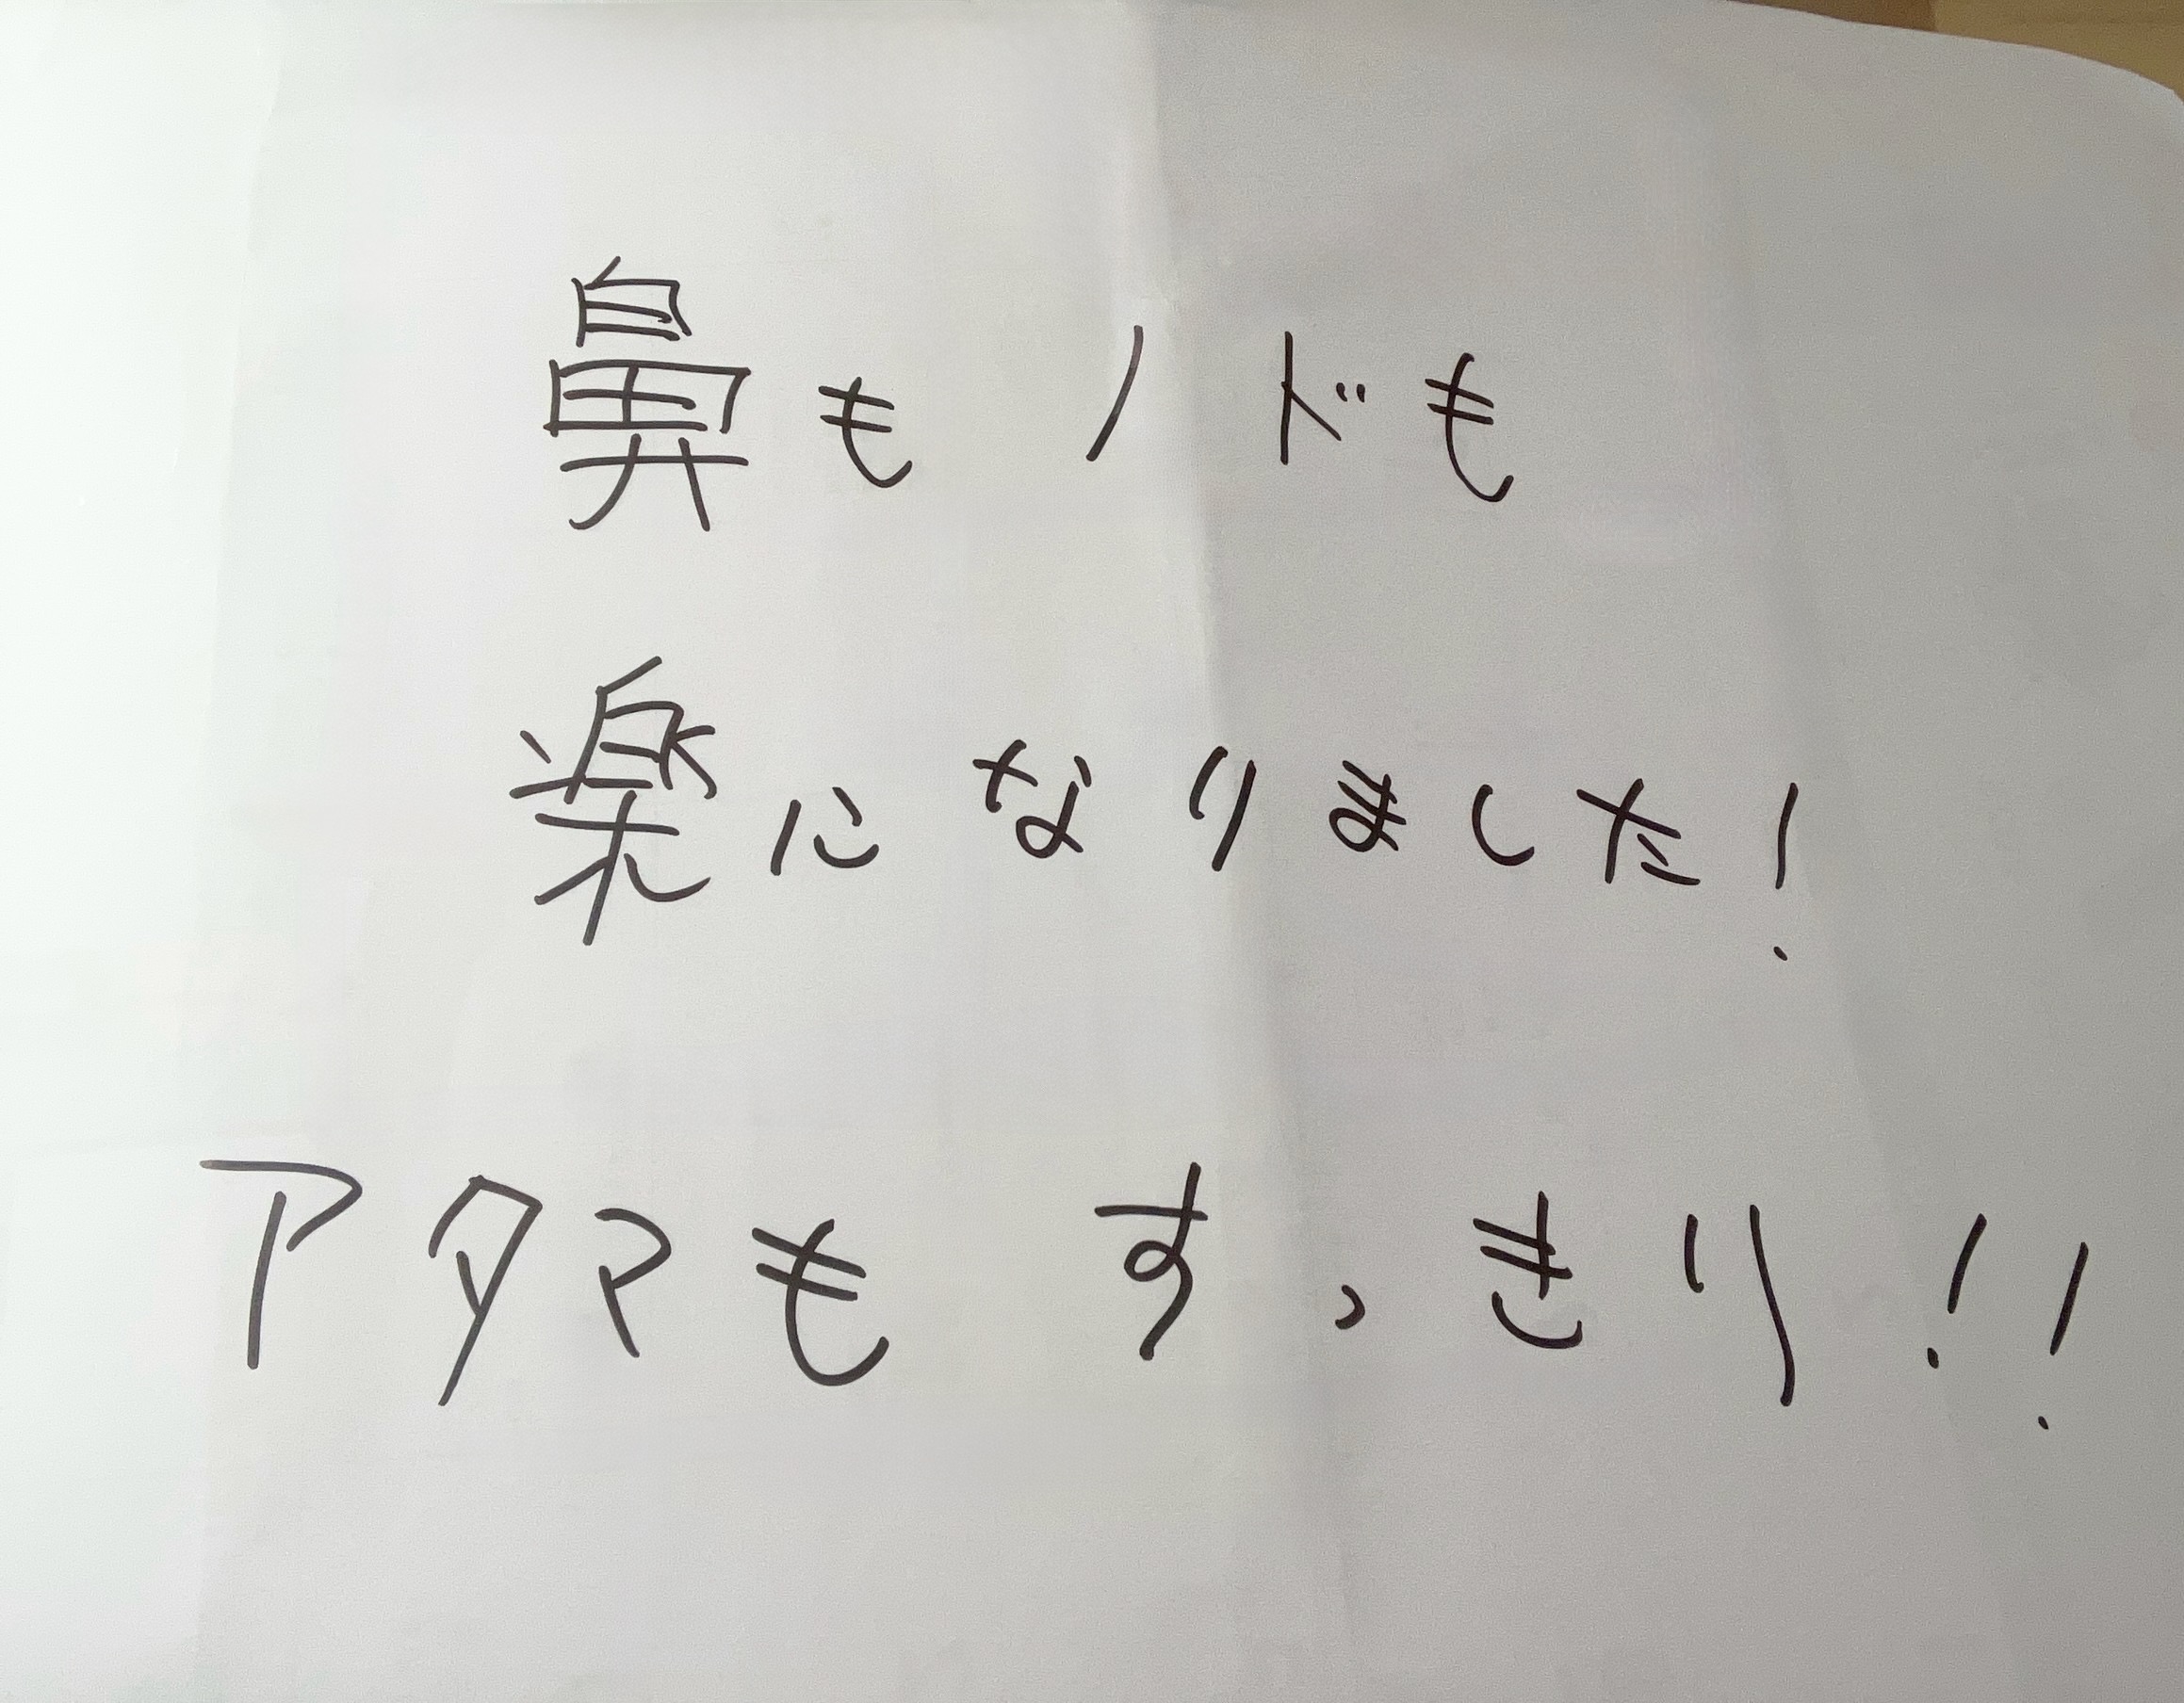 鼻もノドも
楽になりました!
アタマもすっきり!!